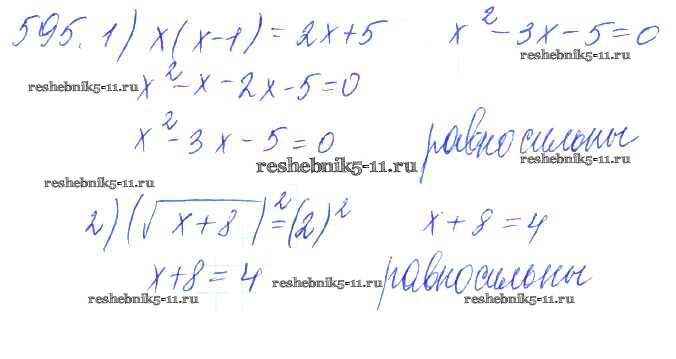 595. 1) x(x-1) = 2x+5 x² - 3x - 5 = 0
reshebnik5-11.ru x² - x - 2x - 5 = 0 reshebnik5-11.ru
x² - 3x - 5 = 0 равносильны
reshebnik5-11.ru reshebnik5-11.ru
reshebnik5-11.ru
2) (√x+8)² = (2)² x + 8 = 4
x+8 = 4 равносильны
reshebnik5-11.ru reshebnik5-11.ru reshebnik5-11.ru